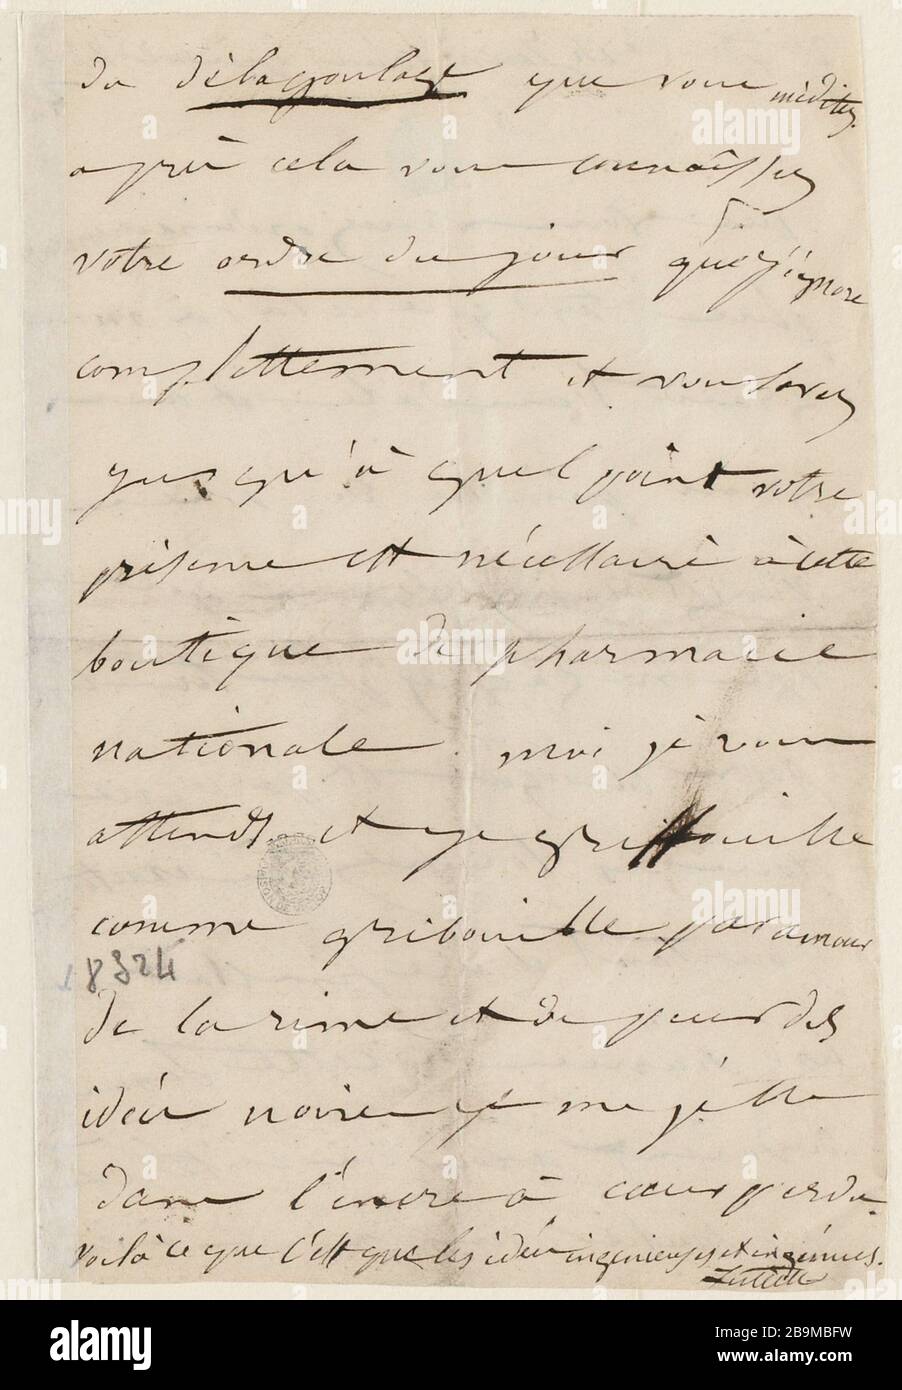 du délagoulage que vous méditez.
après cela vous connaissez
votre ordre du jour que j'ignore
complettement et vous savez
jusqu'à quel point votre
présence est nécessaire à cette
boutique de pharmacie
nationale. moi je vous
attends et je griffouille
comme gribouille par amour
de la rime et de peur des
idées noires je me jette
dans l'encre à cœur perdu
voilà ce que c'est que les idées ingénieuses et ingénues.
18324
alamy
Image ID: 2B9MBFW
www.alamy.com